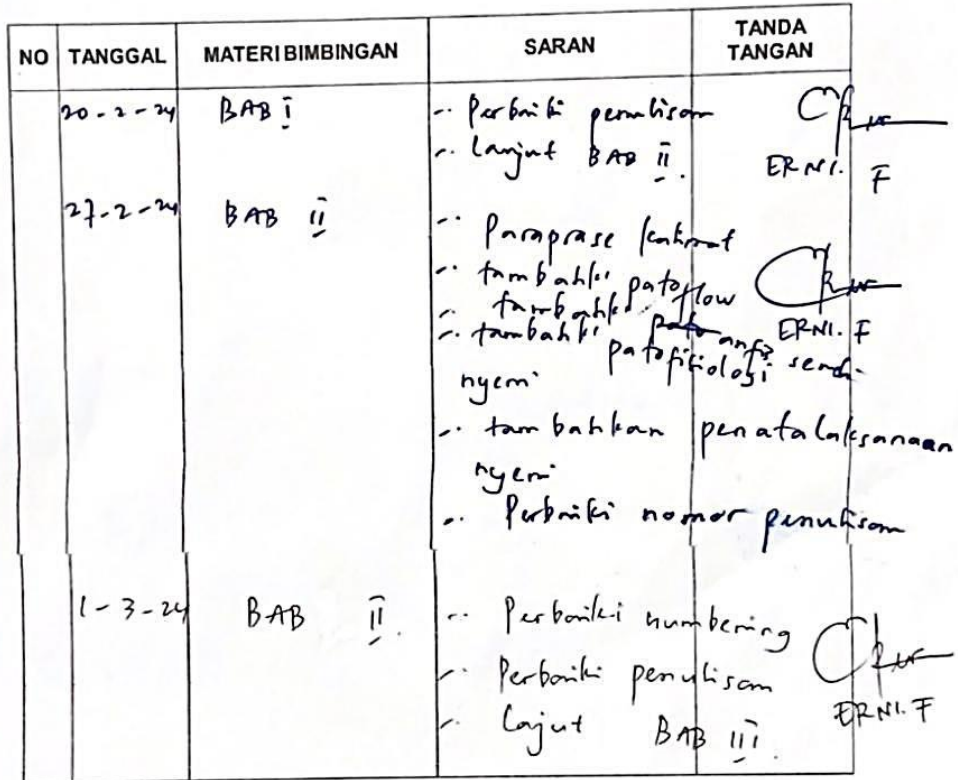 NO TANGGAL MATERI BIMBINGAN SARAN TANDA TANGAN
20-2-24 BAB I - Perbaiki penulisan
- Lanjut BAB II. ERNI. F
27-2-24 BAB II - Paraprase kalimat
- tambahki patoflow
- tambahki ERNI. F
- tambahki patofisiologi sendi
nyeri
- tambahkan penatalaksanaan
nyeri
- Perbaiki nomor penulisan
1-3-24 BAB II. - Perbaiki numbering
- Perbaiki penulisan
- Lajut BAB III ERNI. F